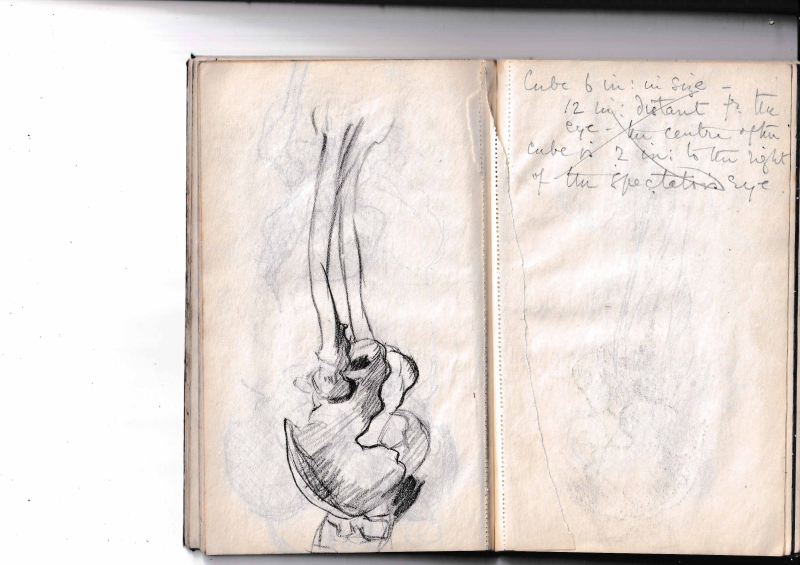 Cube 6 in: in size –
12 in: distant fr the
eye – the centre of the
cube is 2 in: to the right
of the spectator's eye